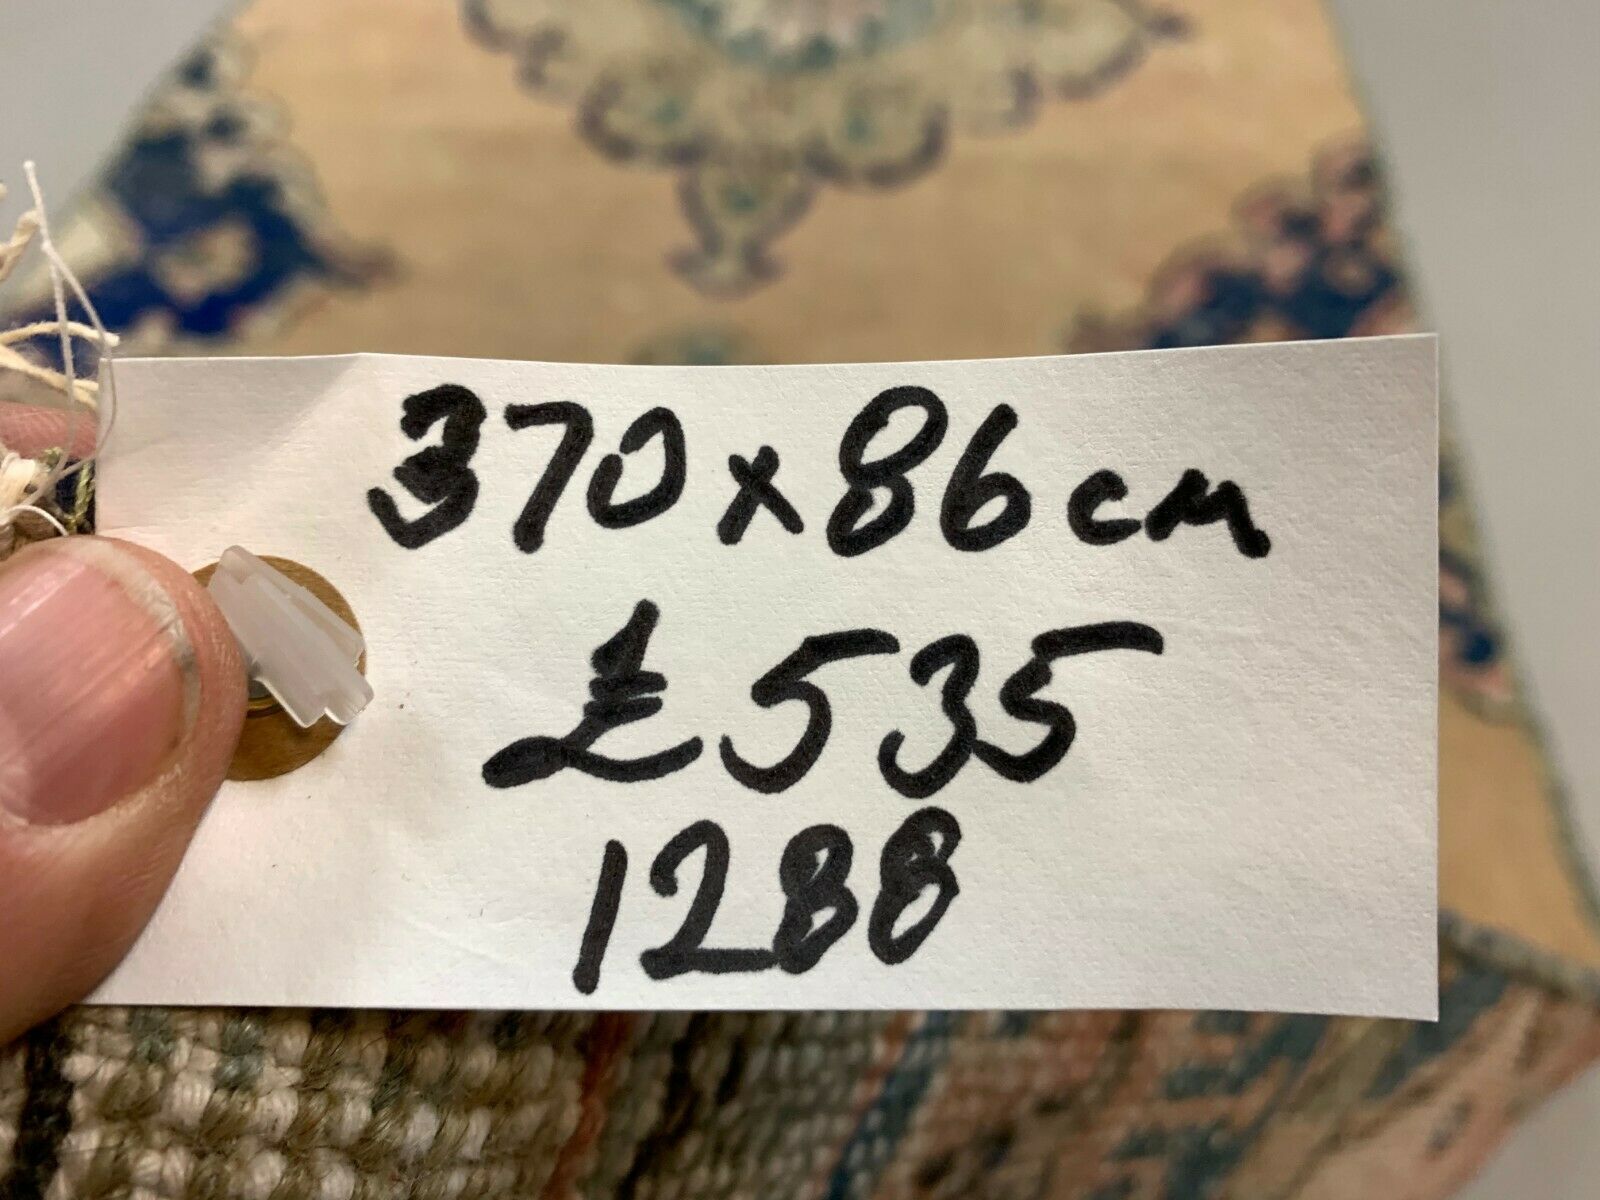 370 x 86 cm
£535
1288